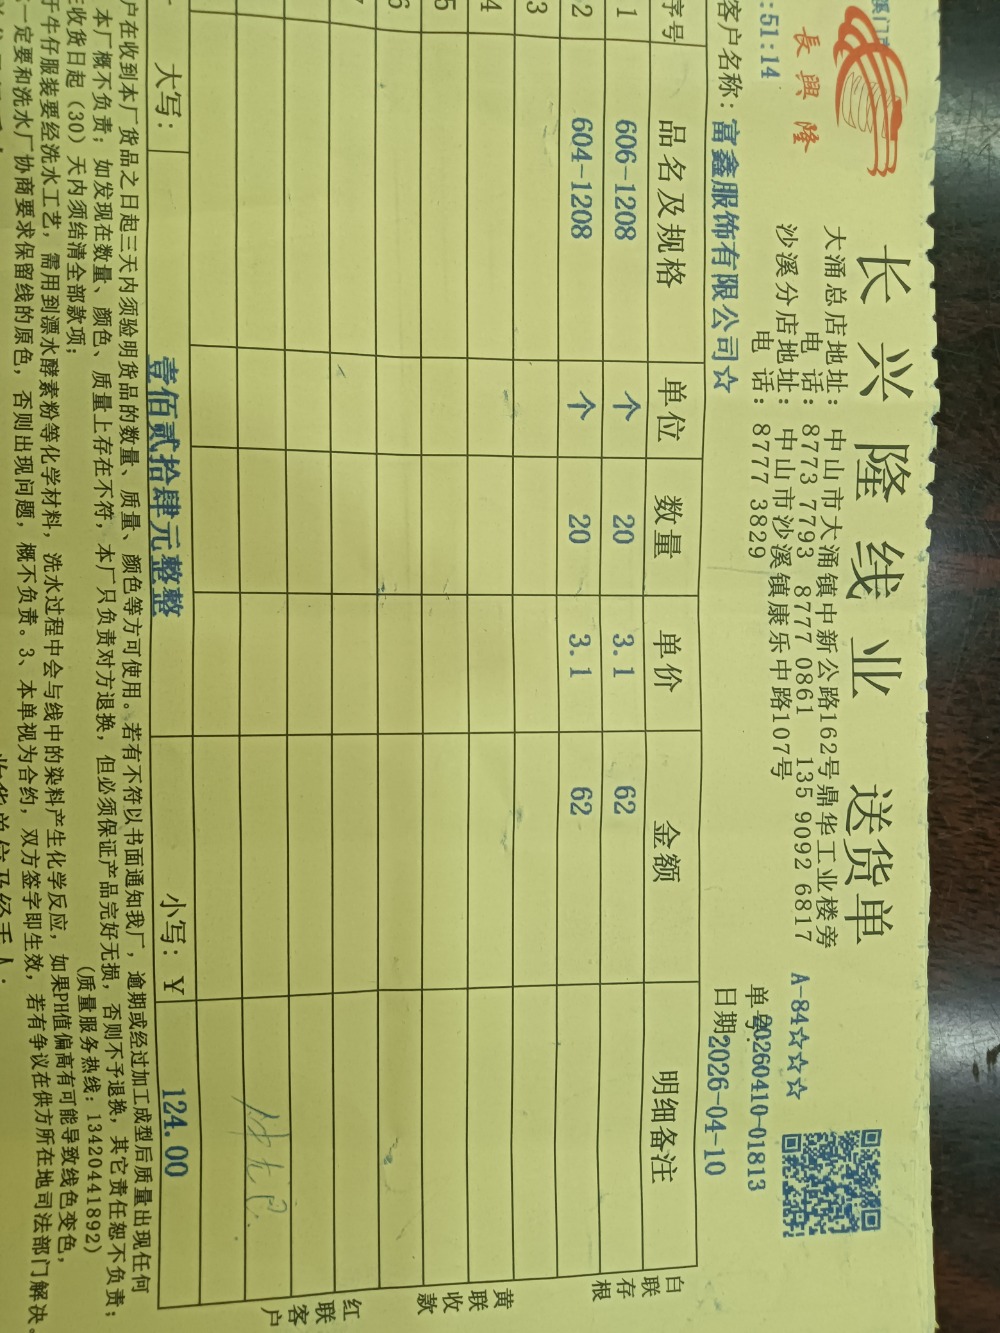 長興隆
:51:14
长兴隆线业 送货单
大涌总店地址: 中山市大涌镇中新公路162号鼎华工业楼旁
电 话: 8773 7793 8777 0861 135 9092 6817
沙溪分店地址: 中山市沙溪镇康乐中路107号
电 话: 8777 3829
A-84☆☆☆
单号:20260410-01813
客户名称:富鑫服饰有限公司☆ 日期2026-04-10
序号 品名及规格 单位 数量 单价 金额 明细备注
1 606-1208 个 20 3.1 62
2 604-1208 个 20 3.1 62
3
4
5
6
大写: 壹佰贰拾肆元整整 小写:¥ 124.00
白联存根
黄联收款
红联客户
户在收到本厂货品之日起三天内须验明货品的数量、质量、颜色等方可使用。若有不符以书面通知我厂,逾期或经过加工成型后质量出现任何
本厂概不负责;如发现在数量、颜色、质量上存在不符,本厂只负责对方退换,但必须保证产品完好无损,否则不予退换,其它责任恕不负责;
收货日起(30)天内须结清全部款项; (质量服务热线:13420441892)
牛仔服装要经洗水工艺,需用到漂水酵素粉等化学材料,洗水过程中会与线中的染料产生化学反应,如果PH值偏高有可能导致线色变色,
一定要和洗水厂协商要求保留线的原色,否则出现问题,概不负责。3、本单视为合约,双方签字即生效,若有争议在供方所在地司法部门解决。
收货单位及经手人: